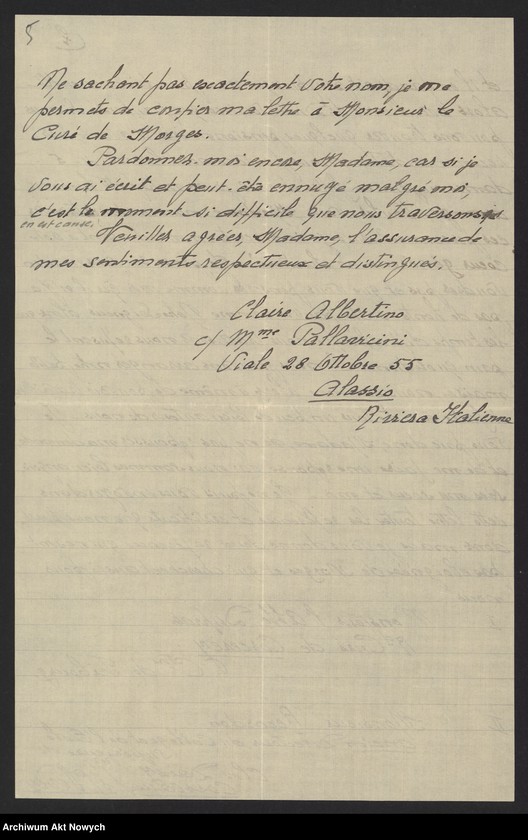 5
Ne sachant pas exactement votre nom, je me
permets de confier ma lettre à Monsieur le
Curé de Morges.
Pardonnez-moi encore, Madame, car si je
vous ai écrit et peut-être ennuyé malgré moi,
c'est le moment si difficile que nous traversons
en est cause.
Veuillez agréer, Madame, l'assurance de
mes sentiments respectueux et distingués.
Claire Albertino
c/ Mme Pallavicini
Viale 28 Ottobre 55
Alassio
Riviera Italienne
Archiwum Akt Nowych